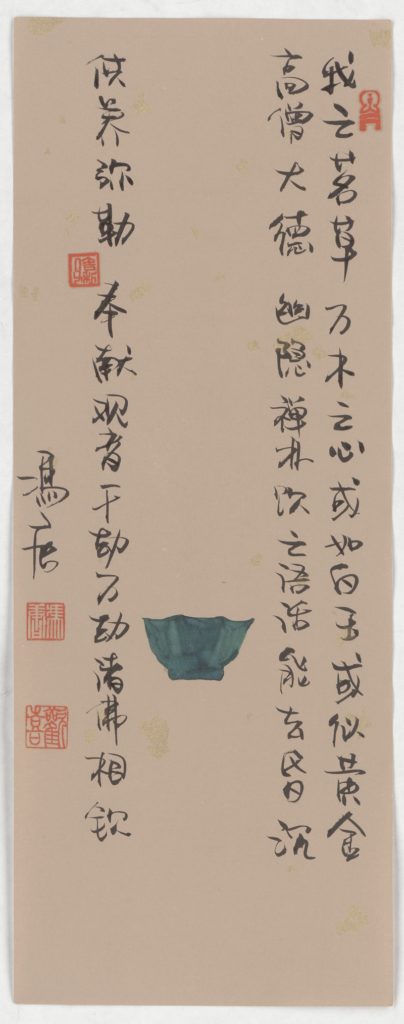 我之茗草万木之心或如白玉或似黄金
高僧大德 幽隐禅林饮之语话能去昏沉
供养弥勒 奉献观音千劫万劫诸佛相钦
馮唐
馮唐
歡喜